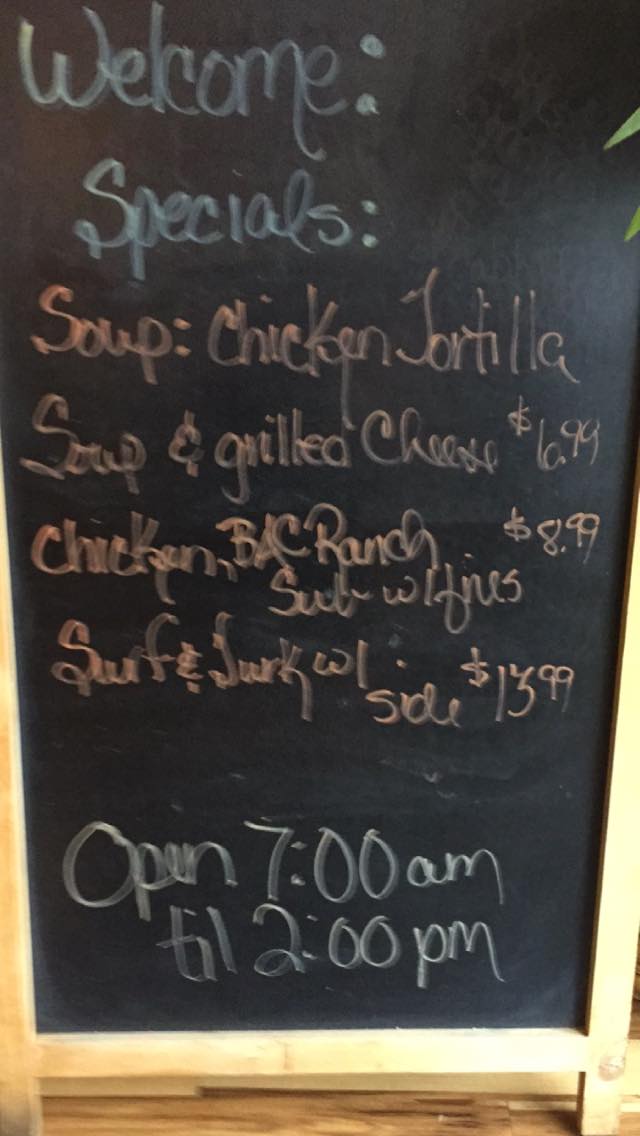 Welcome:
Specials:
Soup: Chicken Tortilla
Soup & grilled Cheese $6.99
Chicken, BAC Ranch $8.99
Sub w/fries
Surf & Turk w/
side $13.99
Open 7:00 am
til 2:00 pm